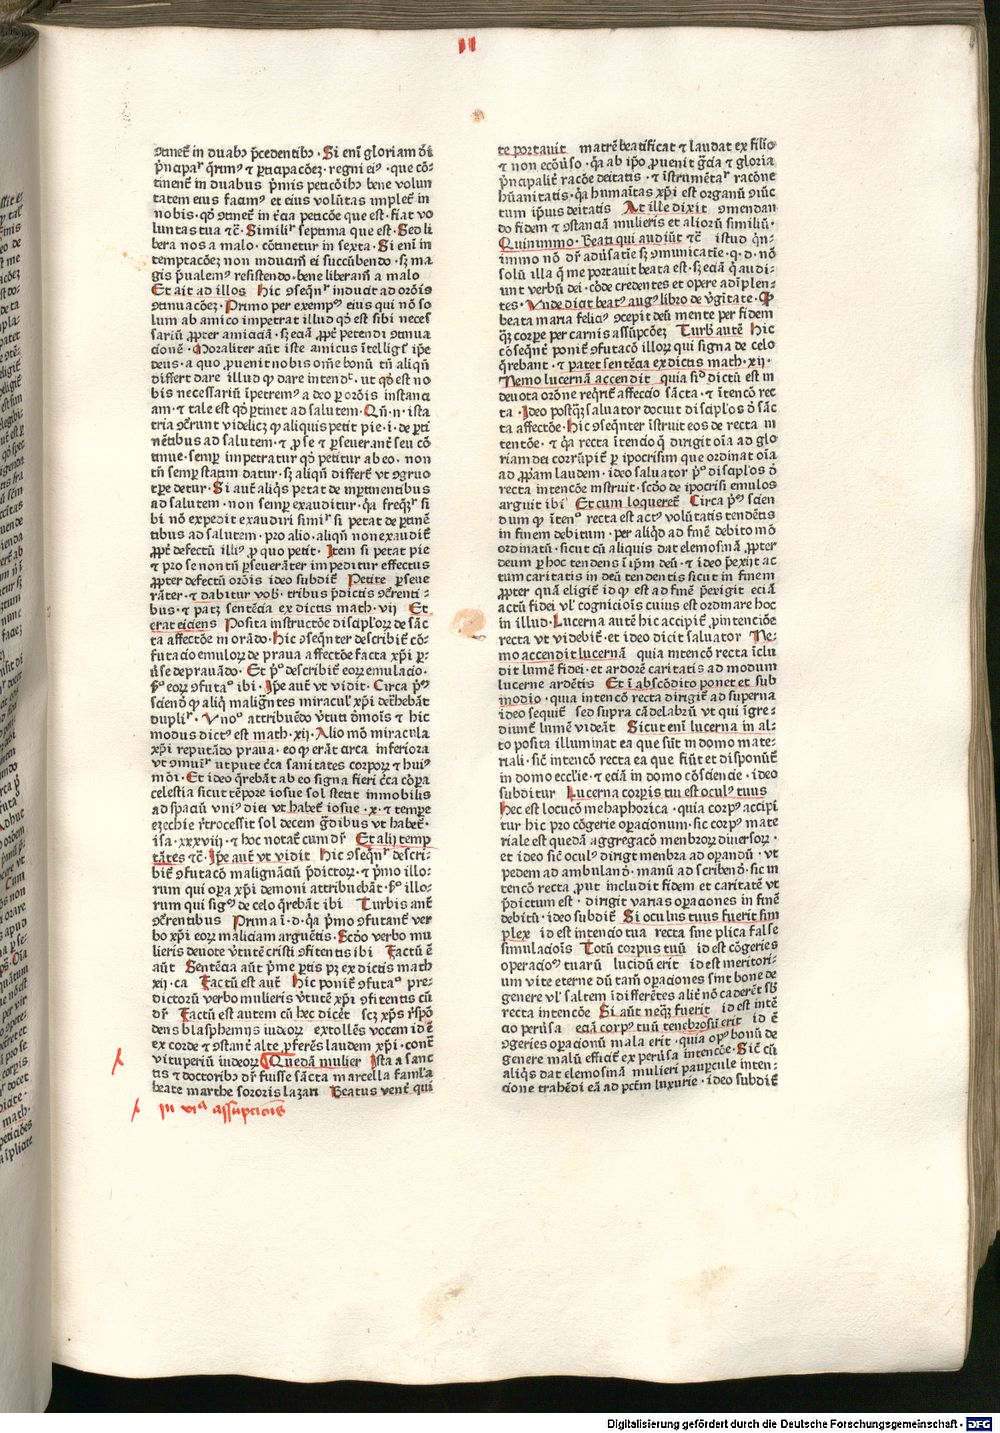 11
ꝯtinet̄ in duabꝫ p̄cedentibꝫ · Si eni᷒ gloriam dī
tinent̄ in duabus pᷓmis peticōibꝫ bene volun
tatem eius facimꝰ et eius volūtas implet̄ in
nobis · qd̓ ꝯtinet̄ in t̓cia peticōe que est · fiat vo
luntas tua ⁊c̄ · Similir̓ septima que est · Sed li
bera nos a malo · cōtinetur in sexta · Si enī in
temptacōeꝫ non inducim̄ ei succūbendo · sꝫ ma
gis p̄ualemꝰ resistendo · bene liberam̄ a malo
Et ait ad illos hic ꝯseqn̄r̄ inducit ad orōis
ꝯtinuacōeꝫ · Primo per exempꝫ eius qui nō so
lum ab amico impetrat illud qd̓ est sibi neces
sariū ꝓpter amiciciā · sꝫ eciā ꝓpt̓ petendi ꝯtinua
cionē · Moraliter aūt iste amicus ītelligr̄ ip̄e
deus · a quo ꝓuenit nobis om̄e bonū tn̄ aliqn̄
differt dare illud qd̓ dare intendꝫ · ut qd̓ est no
bis necessariū īpetremꝰ a deo per orōis instanci
am · ⁊ tale est qd̓ ptinet ad salutem · Qn̄ · n · ista
tria ꝯcr̄unt videlicꝫ qd̓ aliquis petit pie · i · de pti
nētibus ad salutem · ⁊ ꝓ se ⁊ pseuerant̓ seu cō
tinue · semp̱ impetratur qd̓ petitur ab eo · non
tn̄ semp̱ statim datur · sꝫ aliqn̄ differt̄ vt ꝯgruo
tp̱re detur · Si aūt aliqs̓ petat de imptinentibus
ad salutem · non semp̱ exauditur · qa freqn̄r̓ si
bi nō expedit exaudiri similr̓ si petat de ptinē
tibus ad salutem · pro alio · aliqn̄ non exaudit̄
ꝓpt̓ defectū illiꝰ ꝓ quo petit · Item si petat pie
et pro se non tn̄ pseuerāter impeditur effectus
ꝓpter defectū orōis ideo subdit̄ Petite pseue
rāter · ⁊ dabitur vob̄ · tribus p̄dictis ꝯcr̄enti ·
bus · ⁊ patꝫ sentēcia ex dictis math · vij Et
erat eiciens Posita instructōe disciplo℞ de sāc
ta affectōe in orādo · Hic ꝯseqn̄ter describit̄ cō
futacio emulo℞ de praua affectōe facta xp̄i p̱
ūse deprauādo · Et pꝰ describit̄ eo℞ emulacio ·
sꝰ eo℞ ꝯfutaꝰ ibi · Ip̄e aūt vt vidit · Circa pᷓmꝫ
sciendꝫ qd̓ aliqi maligntes miraclᷓ xp̄i det̓hebāt
duplir̓ · Vnoꝰ attribuēdo v̓tuti dmōis ⁊ hic
modus dictꝰ est math · xij · Alio mō miracula
xp̄i reputādo praua · eo qd̓ erāt circa inferiora
mōi · Et ideo qr̄ebāt ab eo signa fieri c̓ca cōrpa
celestia sicut tēpore iosue sol stetit immobilis
ad spaciū vniꝰ diei vt habet̄ iosue · x · ⁊ tempre
ezechie r̓trocessit sol decem gᷓdibus vt habet̄ ·
isa · xxxviij · ⁊ hoc notat̄ cum dr̓ Et alij temp
tātes ⁊c̄ · Ip̄e aūt vt vidit hic ꝯseqn̄r̓ descri ·
bit̄ ꝯfutacō malignāciū p̄dicto℞ · ⁊ pᷓmo illo ·
rum qui opa xp̄i demoni attribuebāt · sꝰ illo ·
rum qui sigꝫ de celo qr̄ebāt ibi Turbis aūt
ꝯcr̄entibus Prima ī · d · qa pᷓmo ꝯfutant̄ ver
bo xp̄i eo℞ maliciam arguētis · Scdō verbo mu
lieris deuote v̓tutē cristi ꝯfitentis ibi Factū ē
aūt Sentēcia aūt pᷓme ptis pꝫ ex dictis math
xij · ca Factū est aūt Hic ponit̄ ꝯfutaꝰ pre ·
dictorū verbo mulieris v̓tutē xp̄i ꝯfitentis cū
dr̓ Factū est autem cū hec dicet̓ scꝫ xp̄s r̄spō
dens blasphemijs iudeo℞ extollēs vocem id ē
ex corde ⁊ ꝯstant̓ alte ꝓferēs laudem xp̄i · cont̓
vituperiū iudeo℞ Quedā mulier Ista a sanc
tis ⁊ doctoribꝫ dr̓ fuisse sācta marcella famlᷓa
beate marthe sororis lazari Beatus vent̓ qui
te portauit matrē beatificat ⁊ laudat ex filio
⁊ non ecōu̓so · qa ab ip̄o ꝓuenit gr̄cia ⁊ gloria
pᷓncipalit̓ racōe deitatis · ⁊ īstrumētar̓ racōne
hūanitatis · qa hūanitas xp̄i est organū ꝯiūc
tum ip̄ius deitatis At ille dixit ꝯmendan
do fidem ⁊ ꝯstanciā mulieris et aliorū similiū ·
Quinimmo · Beati qui audiūt ⁊c̄ istud qn̄ ·
immo nō dr̓ adu̓satie sꝫ ꝯmunicatie · q · d · nō
solū illa q̄ me portauit beata est · sꝫ eciā q̄ audi ·
unt verbū dei · cōde credentes et opere adīplen ·
tes · Vnde dicit beatꝰ augꝰ libro de v̓gītate · Qd̓
beata maria feliciꝰ ꝯcepit deū mente per fidem
qꝫ corpe per carnis assūpcōeꝫ Turb̄ autē Hic
cōseqn̄t̓ ponit̄ ꝯfutacō illo℞ qui signa de celo
qr̄ebant · ⁊ patet sentēcia ex dictis math · xij ·
Nemo lucernā accendit quia sicꝰ dictū est in
deuota orōne reqr̄it̄ affeccio sācta · ⁊ ītencō rec
ta · Ideo postqꝫ saluator docuit disciplos d̓ sāc
ta affectōe · Hic ꝯseqn̄ter īstruit eos de recta in
tentōe · ⁊ qa recta ītencio q̄ dirigit oīa ad glo
riam dei corrūpit̄ p̱ ipocrisim que ordinat oīa
ad ꝓpᷓam laudem · ideo saluator pꝰ disciplos d̓
recta intencōe instruit · scdō de ipocrisi emulos
arguit ibi Et cum loqueret̄ Circa pᷓmꝫ scien
dum qd̓ ītenꝰ recta est actꝰ volūtatis tendētis
in finem debitum · per aliqd̓ ad finē debito mō
ordinatū · sicut cū aliquis dat elemosinā ꝓpter
deum p̱ hoc tendens ī ip̄m deū · ⁊ ideo p̄exijt ac
tum caritatis in deū tendentis sicut in finem
ꝓpter quā eligit̄ id qd̓ est ad finē p̄exigit eciā
actū fidei vlᷓ cognicioīs cuius est ordinare hoc
in illud · Lucerna autē hic accipit̄ ꝓ intenciōe
recta vt videbit̄ · et ideo dicit saluator Ne ·
mo accendit lucernā quia intencō recta īclu
dit lumē fidei · et ardorē caritatis ad modum
lucerne ardētis Et ī abscōdito ponet et sub
modio · quia intencō recta dirigit̄ ad superna
ideo sequit̄ sed supra cādelabrū vt qui īgre ·
diunt̄ lumē videāt Sicut enī lucerna in al ·
to posita illuminat ea que sūt in domo mate ·
riali · sic̄ intencō recta ea que fiūt et disponūt̄
in domo ecclie · ⁊ eciā in domo cōsciencie · ideo
subditur Lucerna corpis tui est oculꝰ tuus
Hec est locucō methaphorica · quia corpꝰ accipi
tur hic pro cōgerie operacionum · sic̄ corpꝰ mate
riale est quedā aggregacō menbro℞ diuerso℞ ·
et ideo sic̄ oculꝰ dirigit menbra ad opandū · vt
pedem ad ambulandū · manū ad scribendū · sic in
tencō recta ꝓut includit fidem et caritatē vt
p̄dictum est · dirigit varias opaciones in finē
debitū · ideo subdit̄ Si oculus tuus fuerit sim
plex id est intencio tua recta sine plica false
simulacioīs Totū corpus tuū id est cōgeries
operacioꝫ tuarū lucidū erit id est meritori ·
um vite eterne dū tam̄ opaciones sint bone de
genere vlᷓ saltem īdifferētes alit̓ nō caderēt sb̓
recta intencōe Si aūt neqꝫ fuerit id est intē
cio peru̓sa eciā corpꝰ tuū tenebrosū erit id ē
ꝯgeries opacionū mala erit · quia opꝰ bonū de
genere malū efficit̄ ex peru̓sa intencōe · Sic̄ cū
aliqs̓ dat elemosinā mulieri paupcule inten ·
cione trahēdi eā ad pctm̄ luxurie · ideo subdit̄
in viᵃ assupcionis
Digitalisierung gefördert durch die Deutsche Forschungsgemeinschaft - DFG